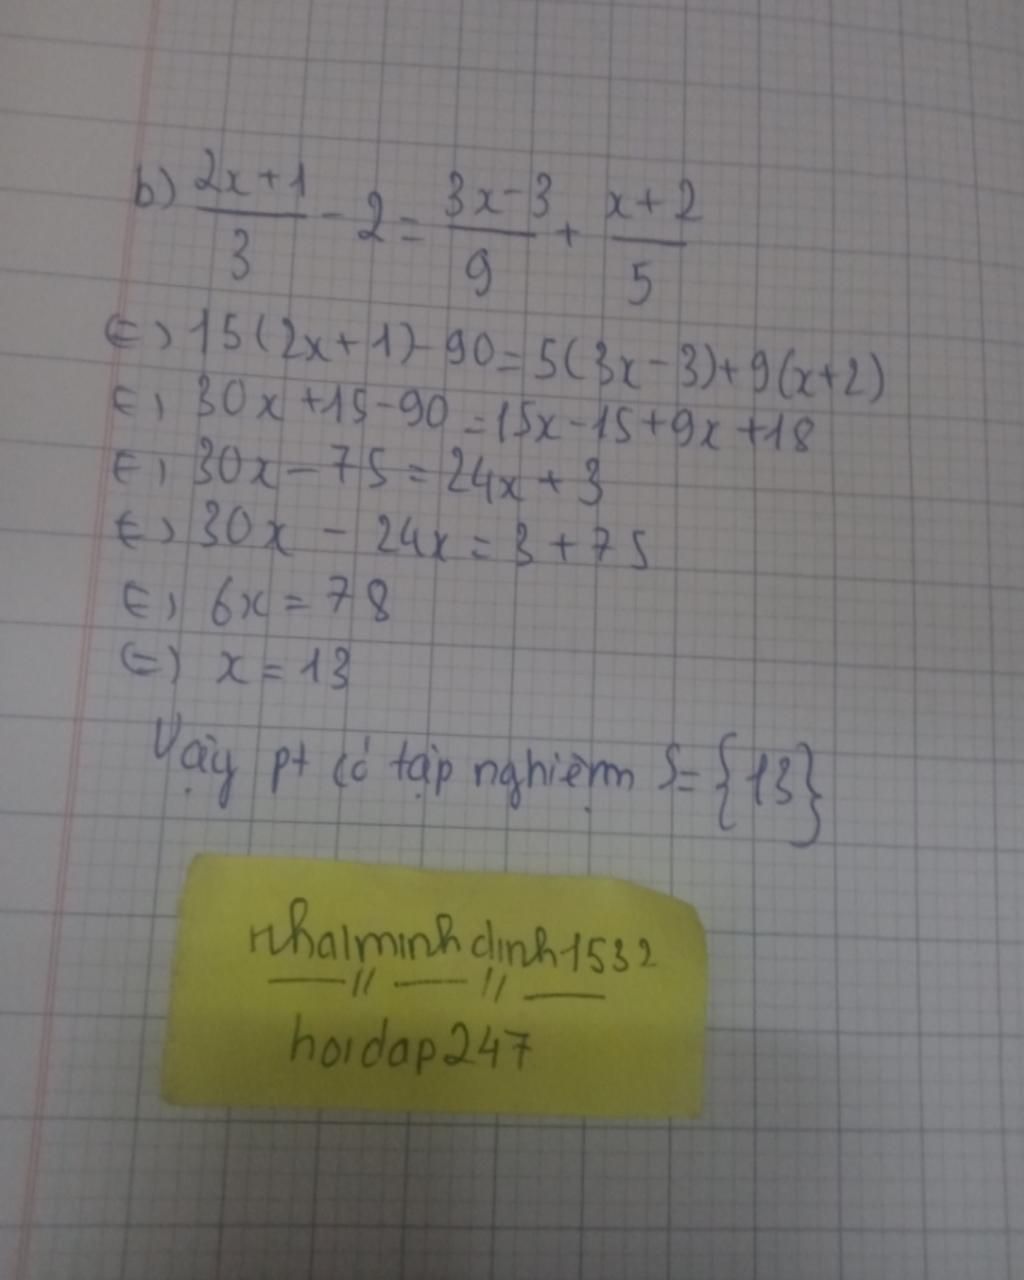 b) (2x+1)/3 - 2 = (3x-3)/9 + (x+2)/5
<=> 15(2x+1)-90=5(3x-3)+9(x+2)
<=> 30x+15-90=15x-15+9x+18
<=> 30x-75=24x+3
<=> 30x-24x=3+75
<=> 6x=78
<=> x=13
Vậy pt có tập nghiệm S={13}
nhalminhdinh1532
hoidap247